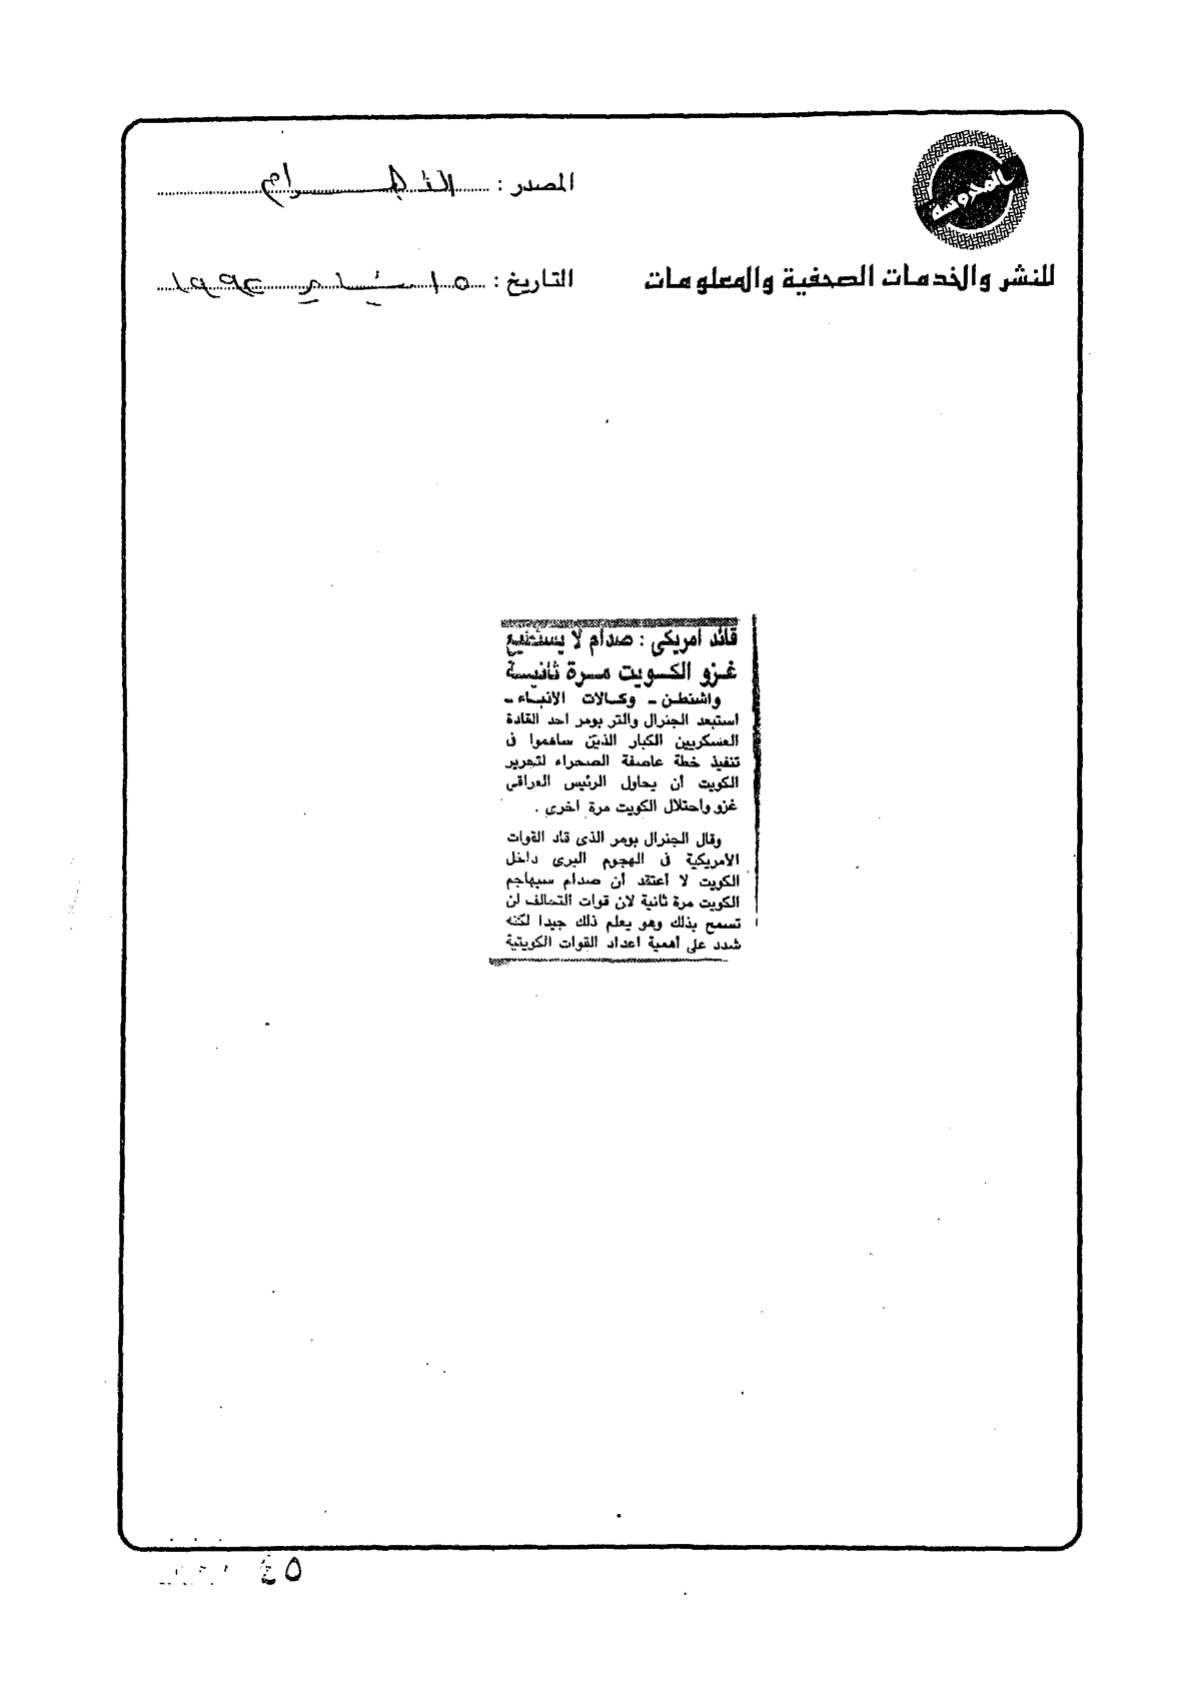 المحروسة
المصدر : الأهـــرام
للنشر والخدمات الصحفية والمعلومات
التاريخ : ١٥ ينـاير ١٩٩٢
قائد امريكى : صدام لا يستطيع
غـزو الكـويت مـرة ثانيـة
واشنطـن ـ وكـالات الأنبـاء ـ
استبعد الجنرال والتر بومر احد القادة
العسكريين الكبار الذين ساهموا فى
تنفيذ خطة عاصفة الصحراء لتحرير
الكويت أن يحاول الرئيس العراقى
غزو واحتلال الكويت مرة اخرى .
وقال الجنرال بومر الذى قاد القوات
الأمريكية فى الهجوم البرى داخل
الكويت لا أعتقد أن صدام سيهاجم
الكويت مرة ثانية لان قوات التحالف لن
تسمح بذلك وهو يعلم ذلك جيدا لكنه
شدد على أهمية اعداد القوات الكويتية
٤٥